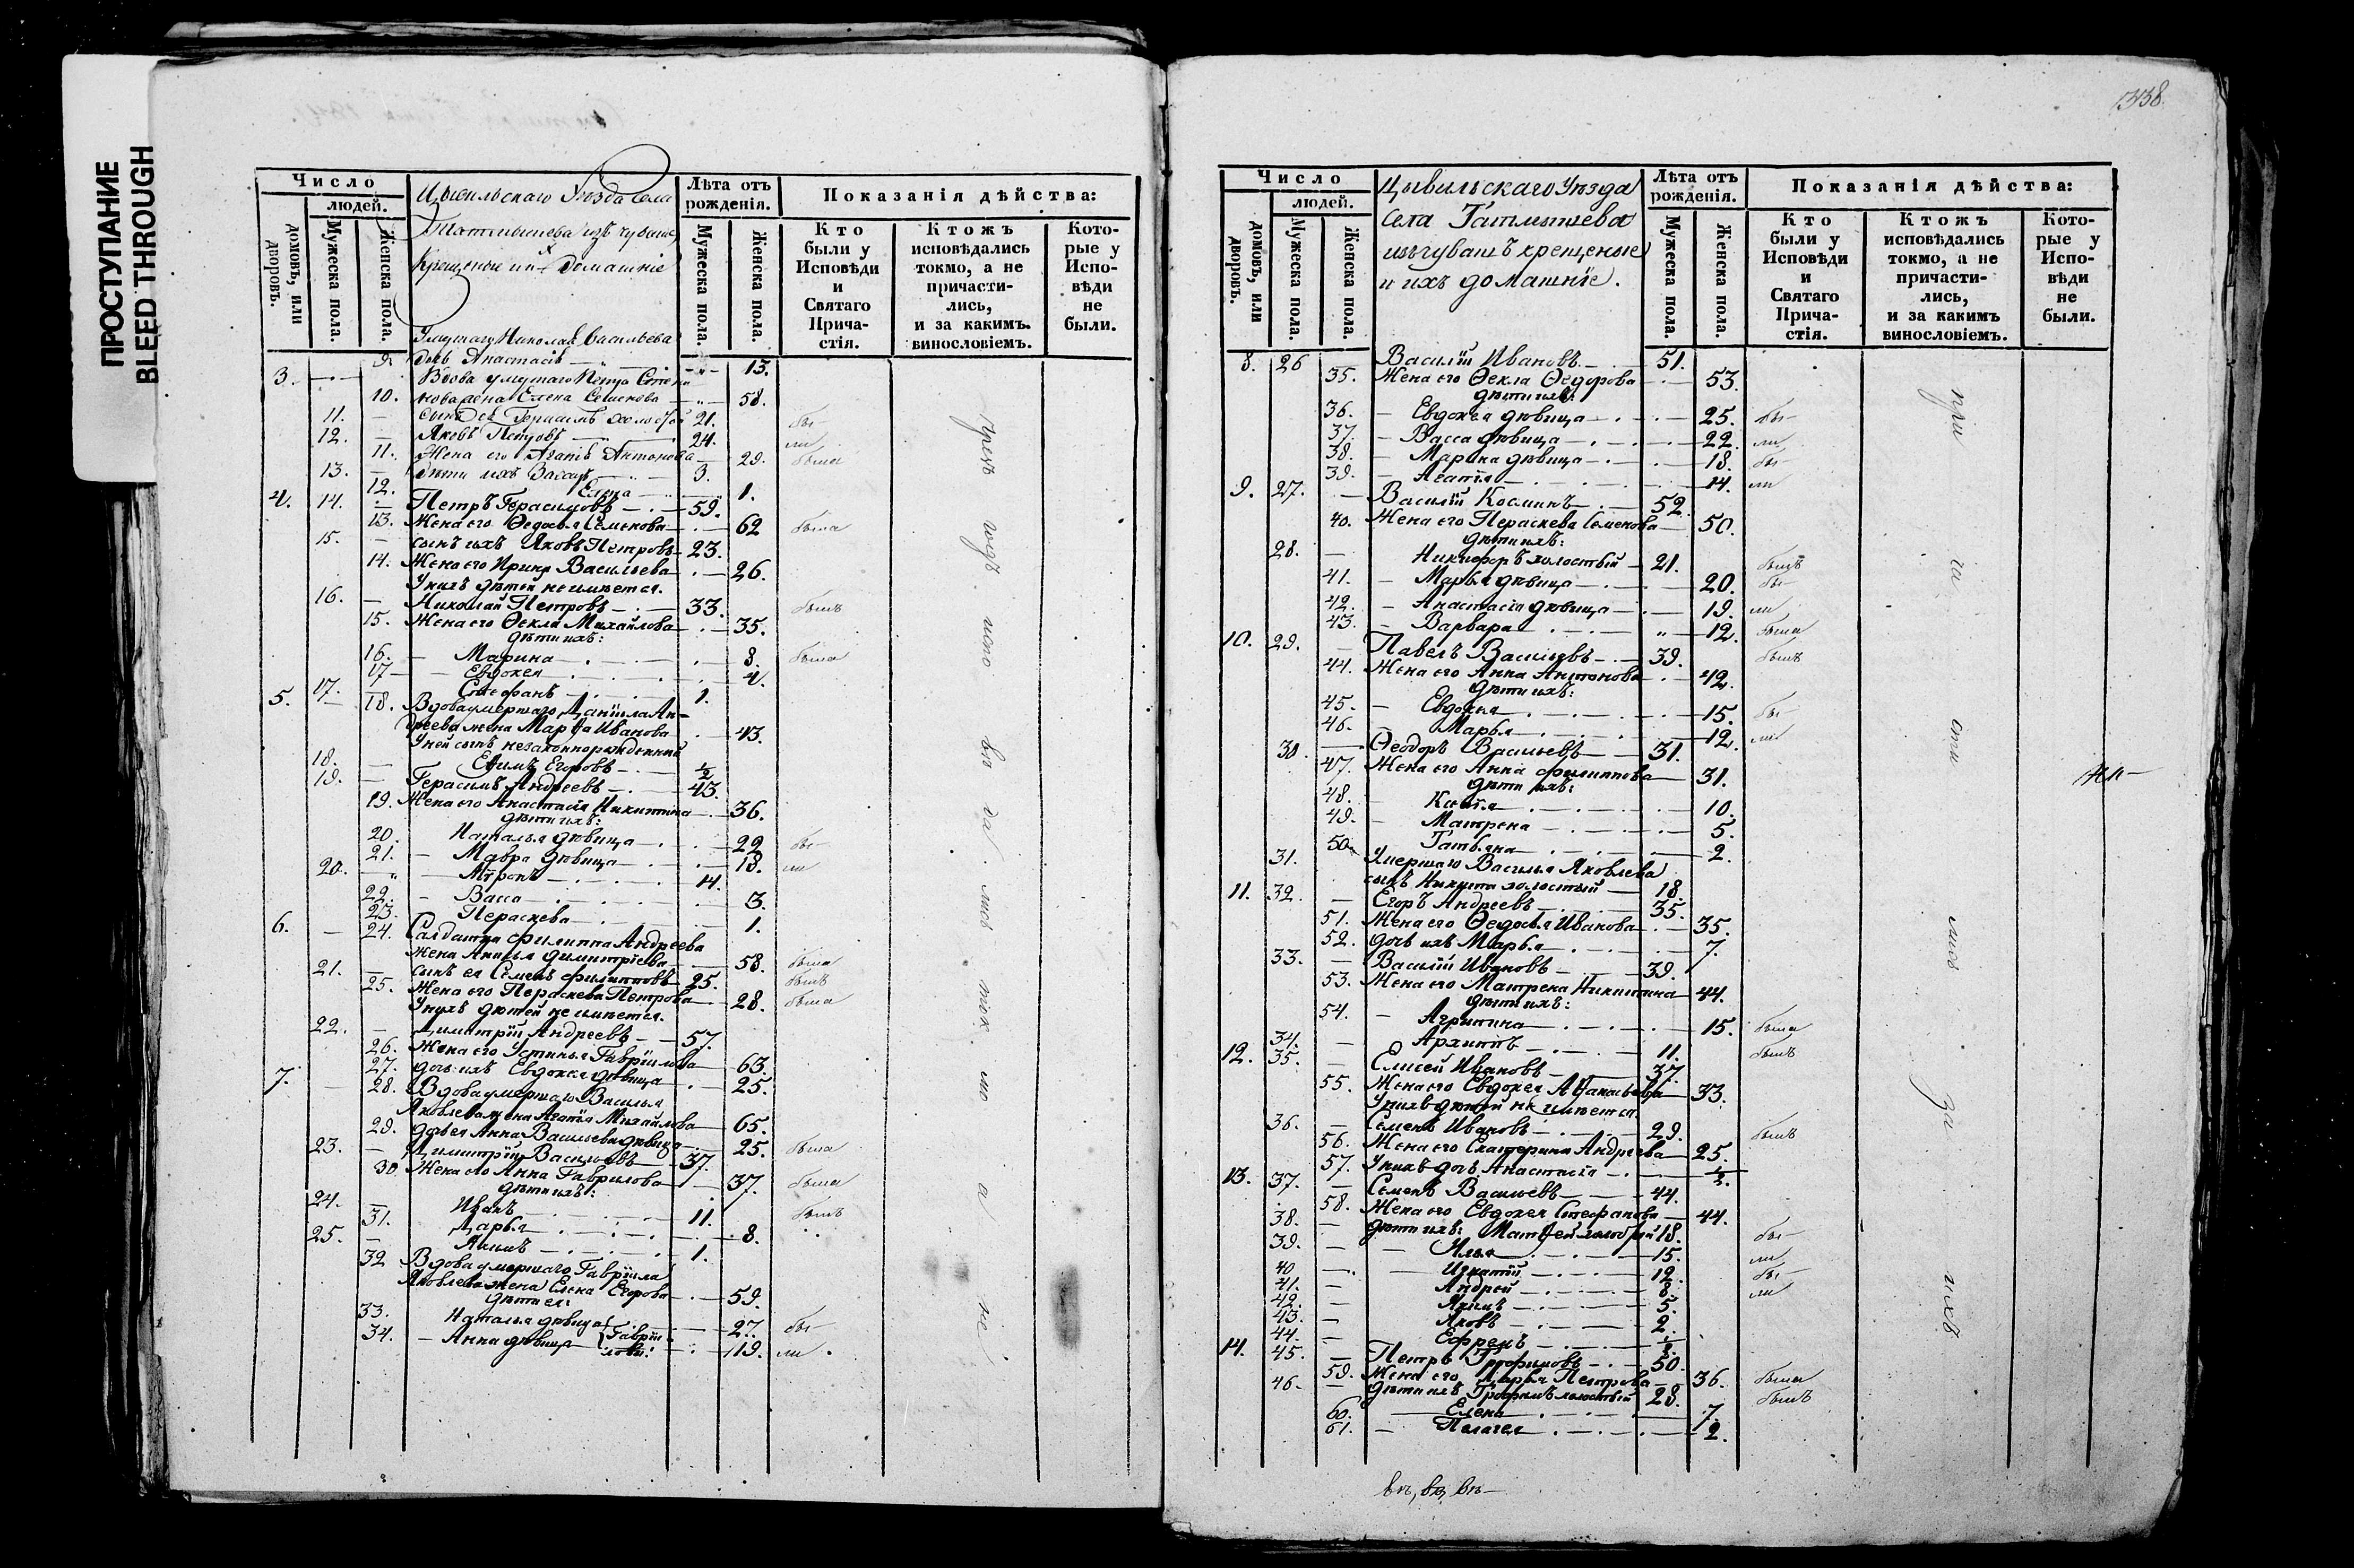 ПРОСТУПАНИЕ
BLEED THROUGH
Число
людей.
домовъ, или дворовъ.
Мужеска пола.
Женска пола.
Цывильскаго Уѣзда Села
крещеные домашніе
Лѣта отъ рожденія.
Мужеска пола.
Женска пола.
Показанія дѣйства:
Кто были у Исповѣди и Святаго Прича-стія.
Ктожъ исповѣдались токмо, а не причасти-лись, и за какимъ винословіемъ.
Кото-рые у Испо-вѣди не были.
Умершаго Николая Васильева
9. дочь Анастасія 13.
3. Вдова умершаго Петра
10. жена Елена Семенова 58.
11. Герасимъ холостой 21. бы-
12. Яковъ Петровъ 24. ли
11. Жена его Агатія Антонова 29. была
13. дѣти ихъ 3.
12. Елена 1.
4. 14. Петръ Герасимовъ 59.
13. Жена его Ѳедосья Семенова 62 была
15. сынъ ихъ Яковъ Петровъ 23.
14. Жена его Ирина Васильева 26.
У нихъ дѣтей не имѣется.
16. Николай Петровъ 33. былъ
15. Жена его Ѳекла Михайлова 35.
дѣти ихъ:
16. Марина 8. была
17 Евдокея 4.
17. Стефанъ 1.
5. 18. Вдова умершаго Даніила Ан-
дреева жена Марѳа Иванова 43.
У ней сынъ незаконнорожденный
18. Ефимъ Егоровъ ½
19. Герасимъ Андреевъ 43.
19. Жена его Анастасія Никитина 36.
дѣти ихъ:
20. Наталья дѣвица 22 бы-
21. Мавра дѣвица 18. ли
20. Миронъ 14.
22. Васса 3.
23. Пераскева 1.
6. 24. Салдатка Филиппа Андреева
жена Димитріева 58. была
21. сынъ ея Семенъ Филипповъ 25. былъ
25. Жена его Пераскева Петрова 28. была
У нихъ дѣтей не имѣется.
22. Димитрій Андреевъ 57.
26. Жена его Устинья Гавріилова 63.
27. дочь ихъ Евдокея дѣвица 25.
7. 28. Вдова умершаго Василья
Яковлева жена Агатія Михайлова 65.
29. дочь ея Анна Васильева дѣвица 25. была
23. Димитрій Васильевъ 37.
30 Жена его Анна Гаврилова 37. была
дѣти ихъ:
24. Иванъ 11. былъ
31. Дарья 8.
25. Акимъ 1.
32 Вдова умершаго Гавріила
Яковлева жена Елена Егорова 59.
дѣти ея:
33. Наталья дѣвица 27. бы-
34. Анна дѣвица Гаврі-ловы: 19. ли
1338.
Число
людей.
домовъ, или дворовъ.
Мужеска пола.
Женска пола.
Цывильскаго Уѣзда
села
изъ чувашъ крещеные
и ихъ домашніе.
Лѣта отъ рожденія.
Мужеска пола.
Женска пола.
Показанія дѣйства:
Кто были у Исповѣди и Святаго Прича-стія.
Ктожъ исповѣдались токмо, а не причасти-лись, и за какимъ винословіемъ.
Кото-рые у Испо-вѣди не были.
8. 26 Василій Ивановъ 51.
35. Жена его Ѳекла Ѳедорова 53.
дѣти ихъ:
36. Евдокея дѣвица 25. бы-
37. Васса дѣвица 22. ли
38. Марина дѣвица 18. бы-
39. Агатія 14. ли
9. 27. Василій Косминъ 52.
40. Жена его Пераскева Семенова 50.
дѣти ихъ:
28. Никифоръ холостый 21. былъ
41. Марья дѣвица 20. бы-
42. Анастасія дѣвица 19. ли
43. Варвара 12. была
10. 29. Павелъ Васильевъ 39. былъ
44. Жена его Анна Антонова 42.
дѣти ихъ:
45. Евдокья 15. бы-
46. Марья 12. ли
30. Ѳеодоръ Васильевъ 31.
47. Жена его Анна Филиппова 31.
дѣти ихъ:
48. 10.
49. Матрена 5.
50. Татьяна 2.
31. Умершаго Василья Яковлева
сынъ Никита холостый 18.
11. 32. Егоръ Андреевъ 35.
51. Жена его Ѳедосья Иванова 35.
52. дочь ихъ Марья 7.
33. Василій Ивановъ 39.
53. Жена его Матрена Никитина 44.
дѣти ихъ:
54. Агрипина 15. была
34. Архиппъ 11. былъ
12. 35. Елисей Ивановъ 37.
55. Жена его Евдокея Аѳанасьева 33.
У нихъ дѣтей не имѣется.
36. Семенъ Ивановъ 29. былъ
56. Жена его Екатерина Андреева 25.
57. У нихъ дочь Анастасія ½.
13. 37. Семенъ Васильевъ 44.
58. Жена его Евдокея Стефанова 44.
38. дѣти ихъ: Матѳей 18. бы-
39. Илья 15. ли
40 Игнатій 12. бы-
41. Андрей 8. ли
42. Акимъ 5.
43. Яковъ 2.
44. Ефремъ
14. 45. Петръ Трофимовъ 50.
59. Жена его Дарья Петрова 36. была
46. дѣти ихъ Трофимъ холостый 28. былъ
60. Елена 7.
61. Пелагея 2.